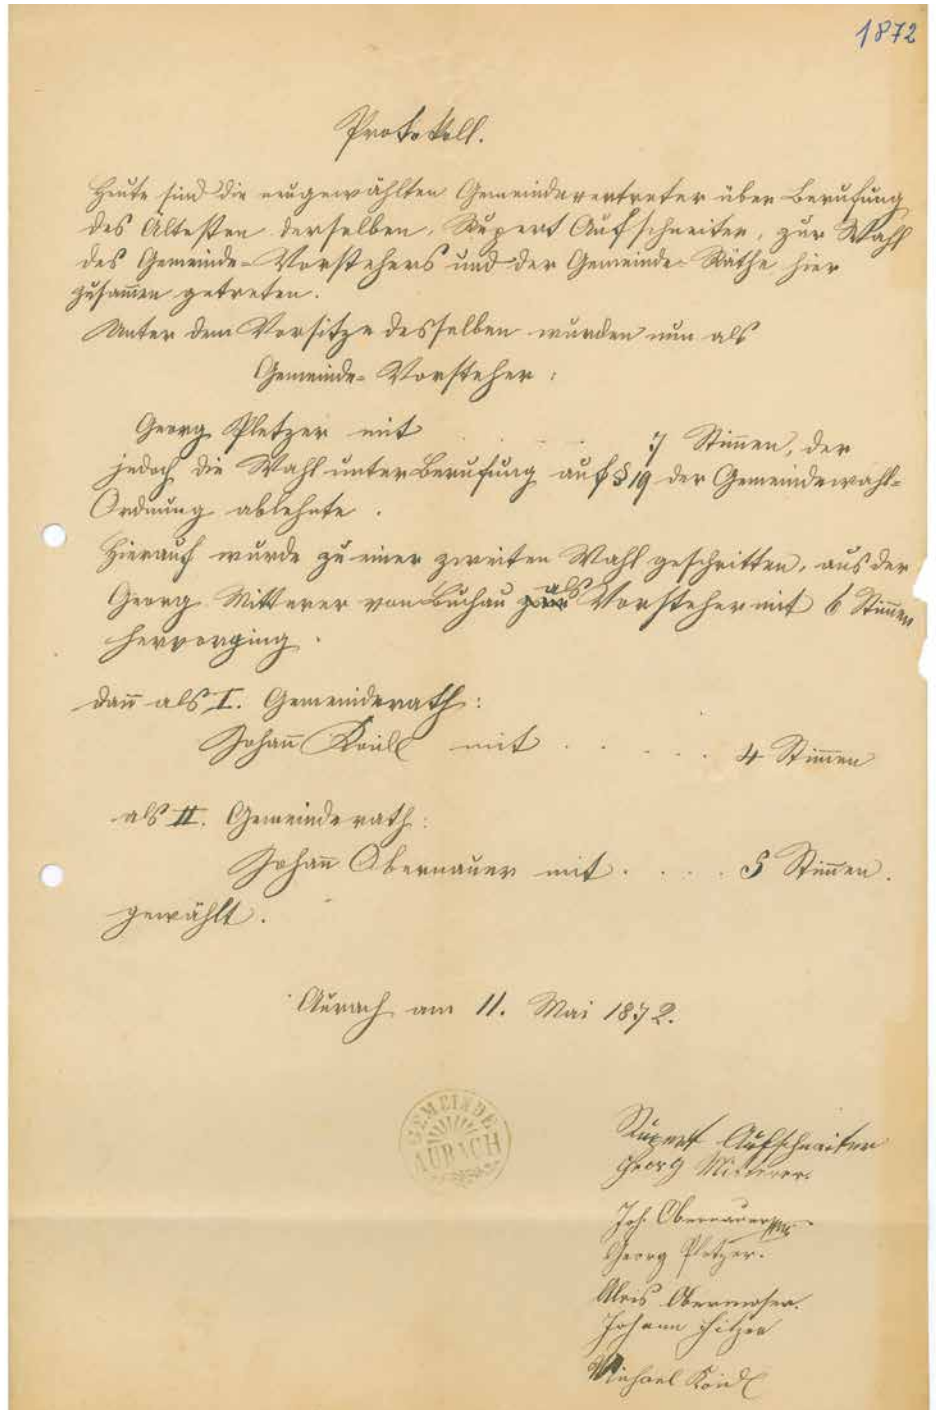 1872
Protokoll.
Heute sind die neugewählten Gemeindevertreter über Berufung
des Ältesten derselben, Rupert Aufschnaiter, zur Wahl
des Gemeinde-Vorstehers und der Gemeinde-Räthe hier
zusam̅en getreten.
Unter dem Vorsitze desselben wurden nun als
Gemeinde-Vorsteher:
Georg Pletzer mit . . . . 7 Stim̅en, der
jedoch die Wahl unter Berufung auf § 19 der Gemeindewahl-
Ordnung ablehnte.
Hierauf wurde zu einer zweiten Wahl geschritten, aus der
Georg Mitterer von Buchau als Vorsteher mit 6 Stim̅en
hervorging.
dan̅ als I. Gemeinderath:
Johan̅ Koidl mit . . . . . 4 Stim̅en
als II. Gemeinderath:
Johan̅ Obernauer mit . . . . 5 Stim̅en.
gewählt.
Aurach am 11. Mai 1872.
GEMEINDE
AURACH
Rupert Aufschnaiter
Georg Mitterer.
Joh. Obernauer
Georg Pletzer.
Alois Obermoser.
Johann
Michael Koidl